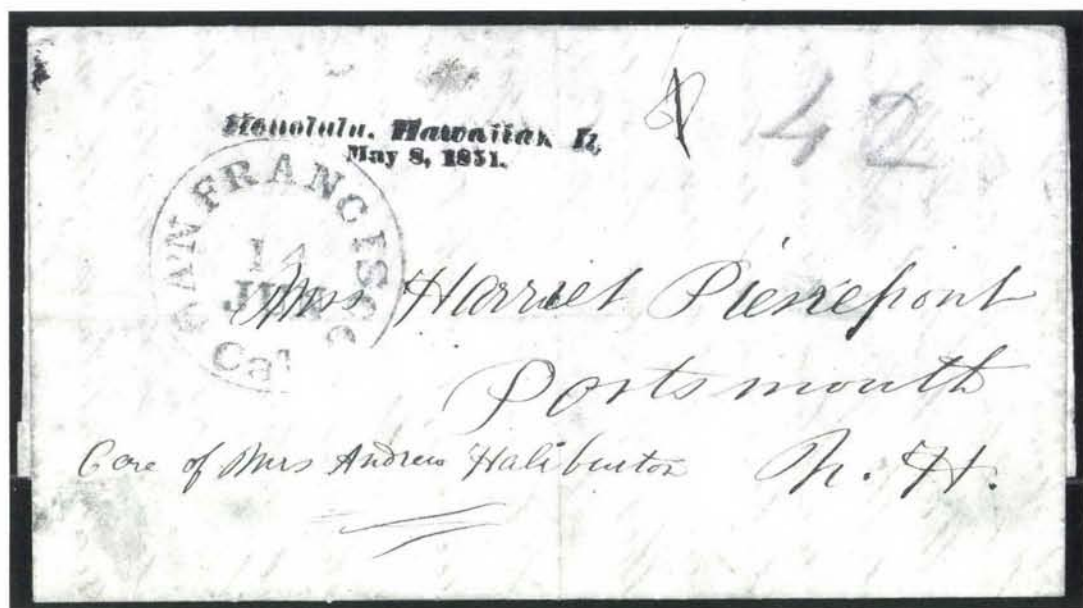 42
Honolulu. Hawaiian Is,
May 8, 1851.
SAN FRANCISCO
14
Cal
Miss Harriet Pierrepont
Portsmouth
Care of Mrs Andrew Haliburton N. H.